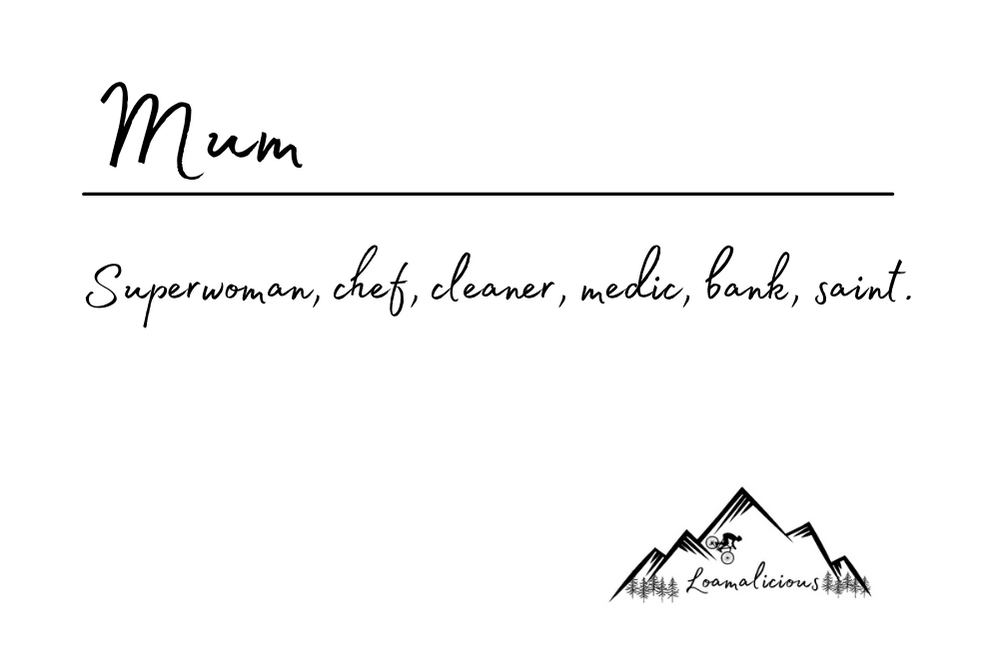 Mum
Superwoman, chef, cleaner, medic, bank, saint.
Loamalicious